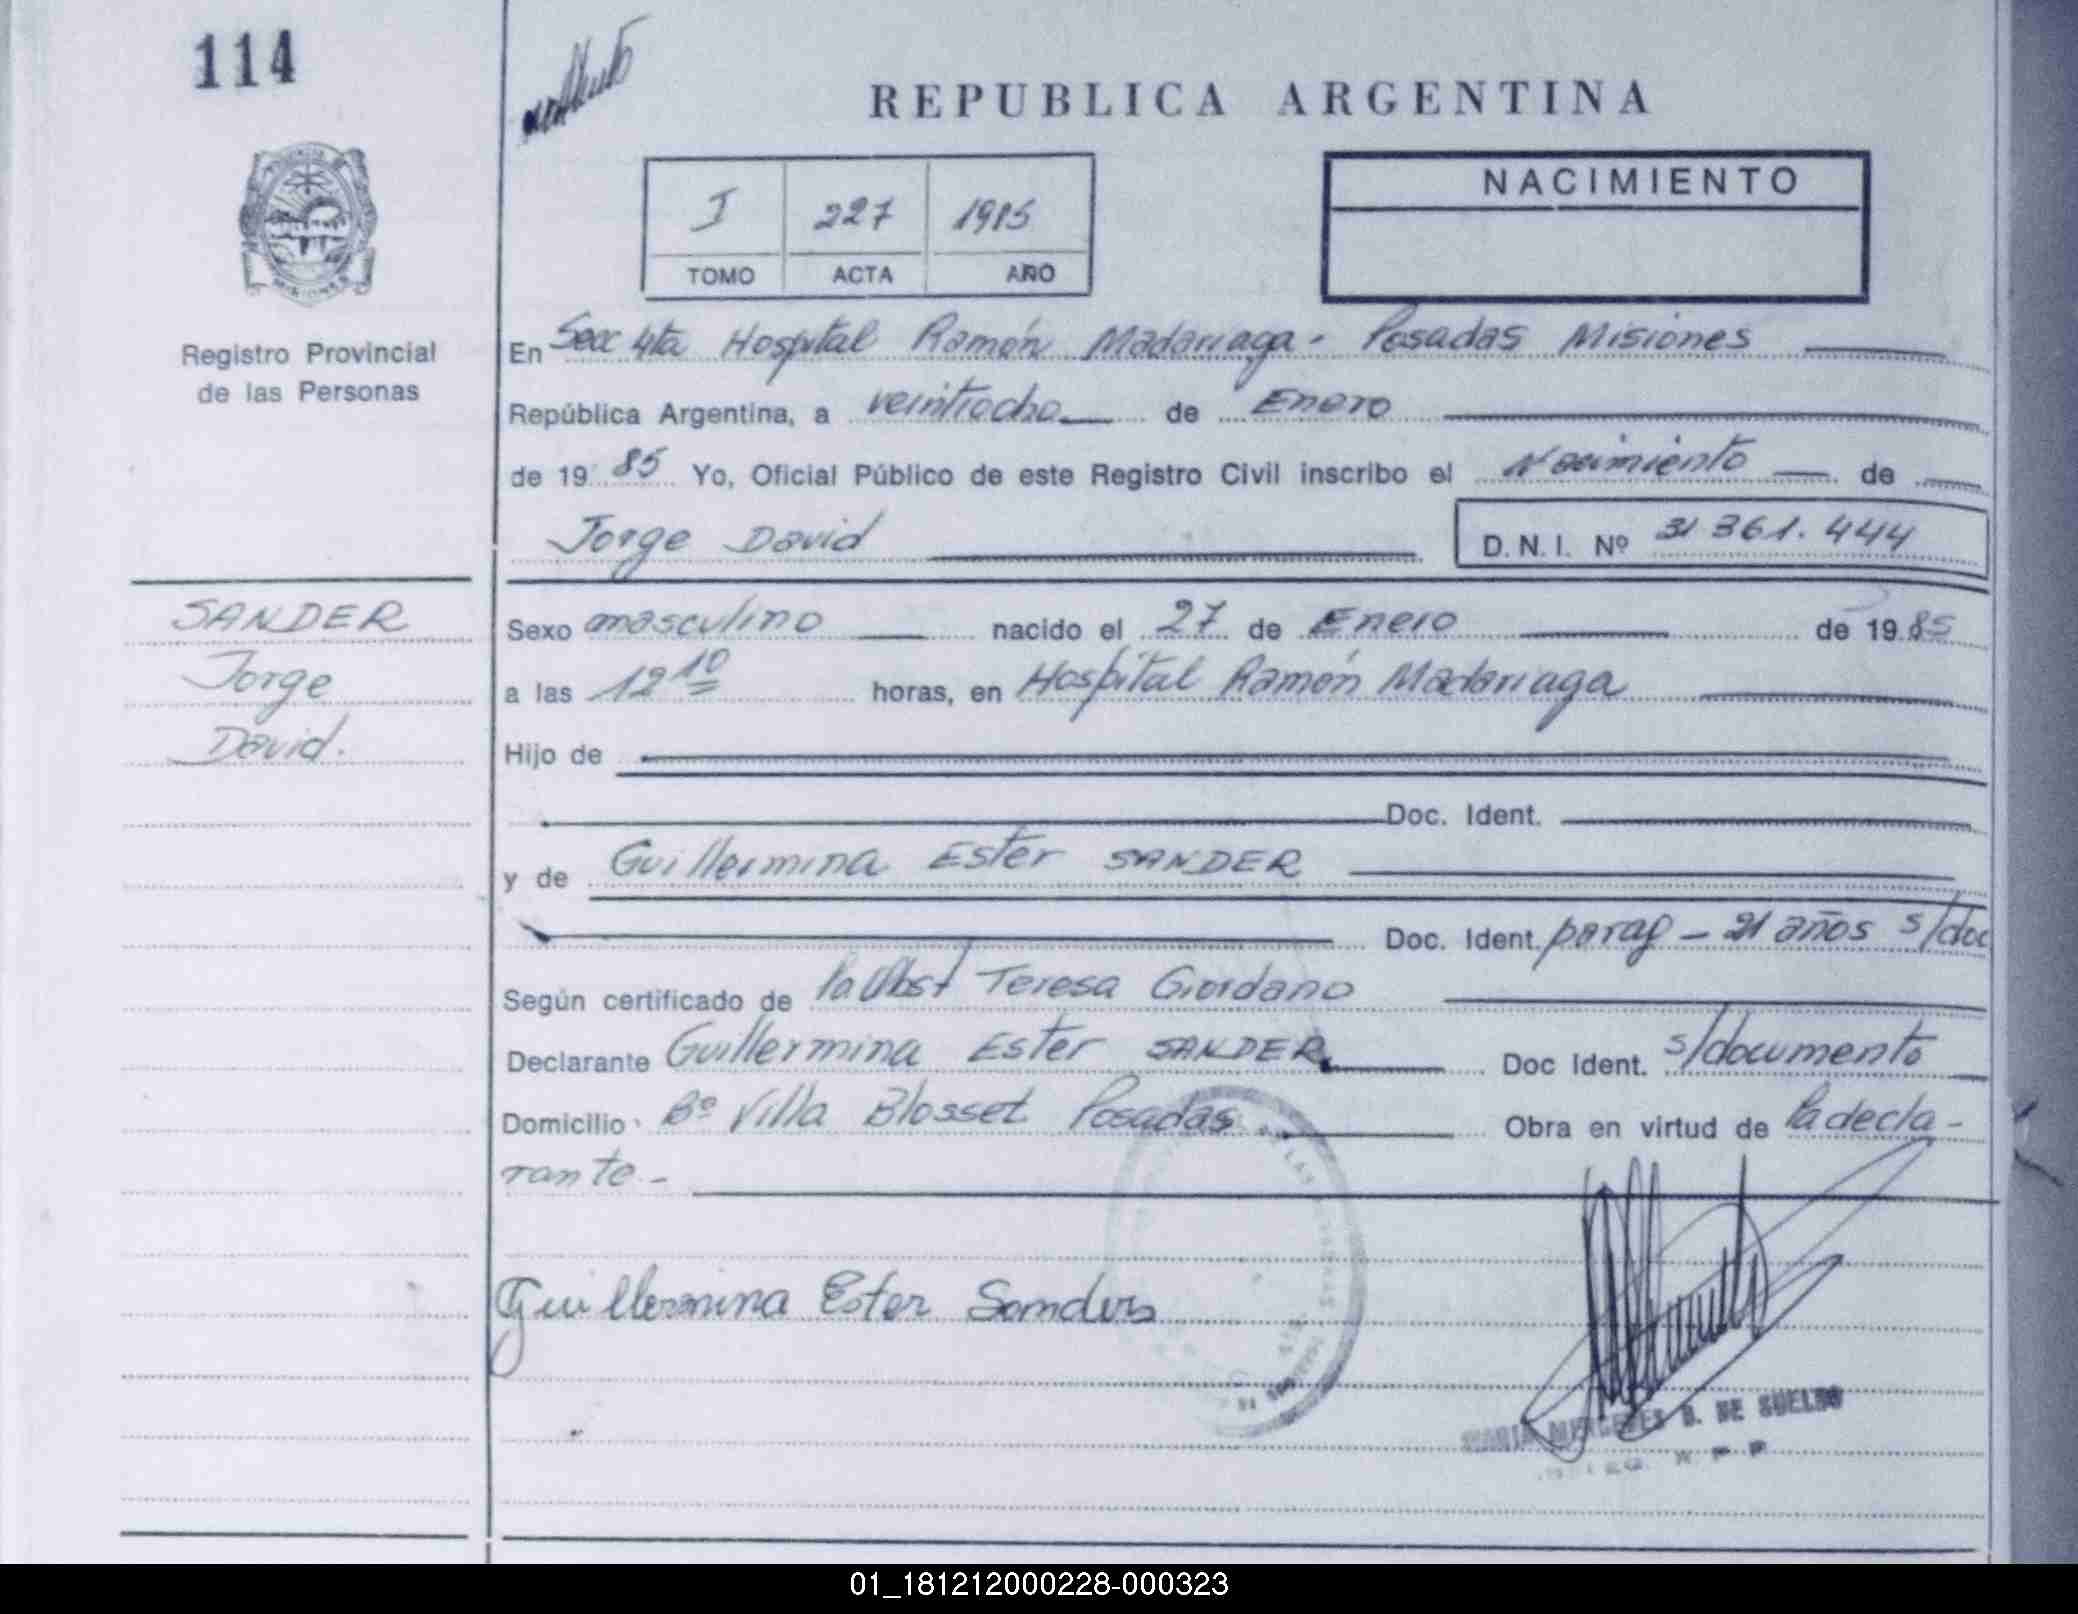 114
REPUBLICA ARGENTINA
NACIMIENTO
I 227 1985
TOMO ACTA AÑO
Registro Provincial
de las Personas
En Secc 4ta Hospital Ramón Madariaga - Posadas Misiones
República Argentina, a veintiocho de Enero
de 19 85 Yo, Oficial Público de este Registro Civil inscribo el Nacimiento de
Jorge David D.N.I. Nº 31 361.444
SANDER
Jorge
David.
Sexo masculino nacido el 27 de Enero de 19 85
a las 12 10 horas, en Hospital Ramón Madariaga
Hijo de
Doc. Ident.
y de Guillermina Ester SANDER
Doc. Ident. parag - 21 años s/doc
Según certificado de la Obst Teresa Giordano
Declarante Guillermina Ester SANDER Doc Ident. s/documento
Domicilio Bº Villa Blosset Posadas Obra en virtud de la decla-
rante.-
Guillermina Ester Sander
MARIA MERCEDES B. DE SUELDO
01_181212000228-000323